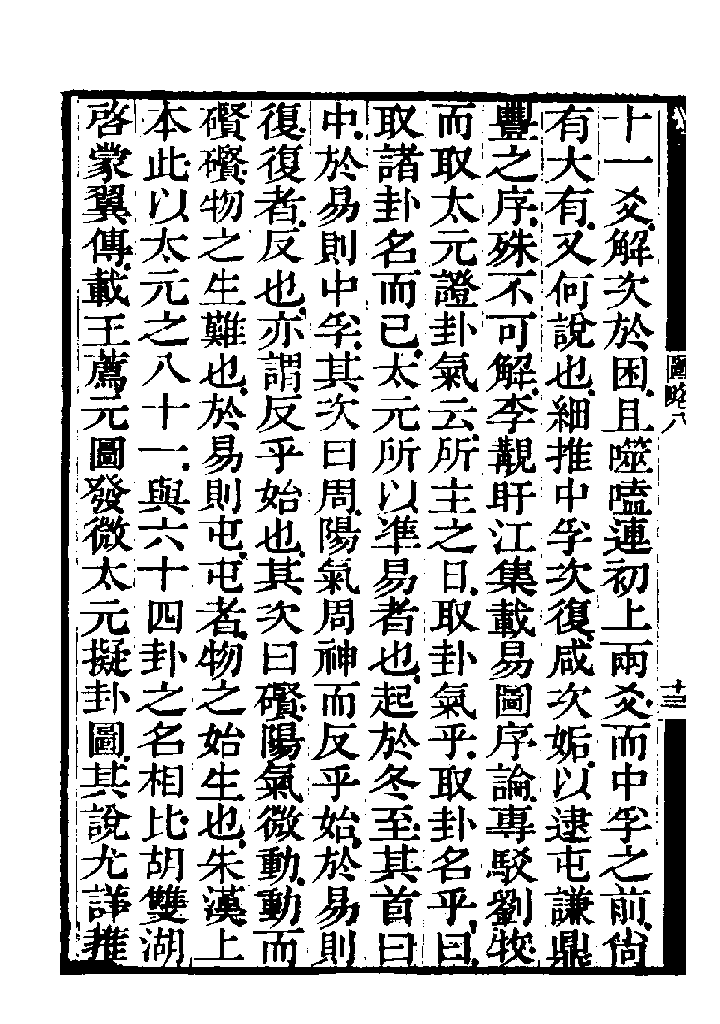 十一爻解次於困且噬嗑連初上兩爻而中孚之前尙
有大有又何說也細推中孚次復咸次姤以逮屯謙鼎
豐之序殊不可解李覯盱江集載易圖序論專駁劉牧
而取太元證卦氣云所主之日取卦氣乎取卦名乎曰
取諸卦名而已太元所以準易者也起於冬至其首曰
中於易則中孚其次曰周陽氣周神而反乎始於易則
復復者反也亦謂反乎始也其次曰礥陽氣微動動而
礥礥物之生難也於易則屯屯者物之始生也朱漢上
本此以太元之八十一與六十四卦之名相比胡雙湖
啓蒙翼傳載王薦元圖發微太元擬卦圖其說尤詳推
圖略八
十三